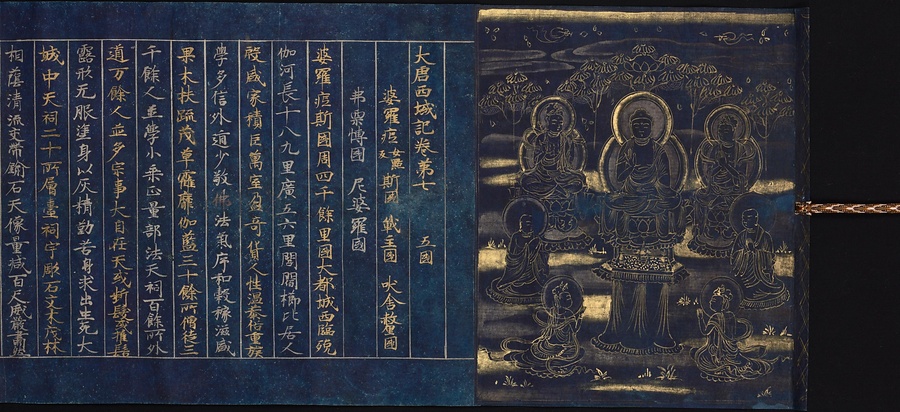 大唐西域記卷第七　五國
婆羅痆女黠反斯國　戰主國　吠舍釐國
弗栗恃國　尼婆羅國
婆羅痆斯國周四千餘里國大都城西臨殑
伽河長十八九里廣五六里閭閻櫛比居人
殷盛家積巨萬室盈奇貨人性溫恭俗重
學多信外道少敬佛法氣序和穀稼滋盛
果木扶疏茂草靃靡伽藍三十餘所僧徒三
千餘人並學小乘正量部法天祠百餘所外
道万餘人並多宗事大自在天或斷髮或椎髻
露形无服塗身以灰精勤苦身求出生死大
城中天祠二十所層臺祠宇彫石文木茂林
相蔭清流交帶鍮石天像量減百尺威嚴肅